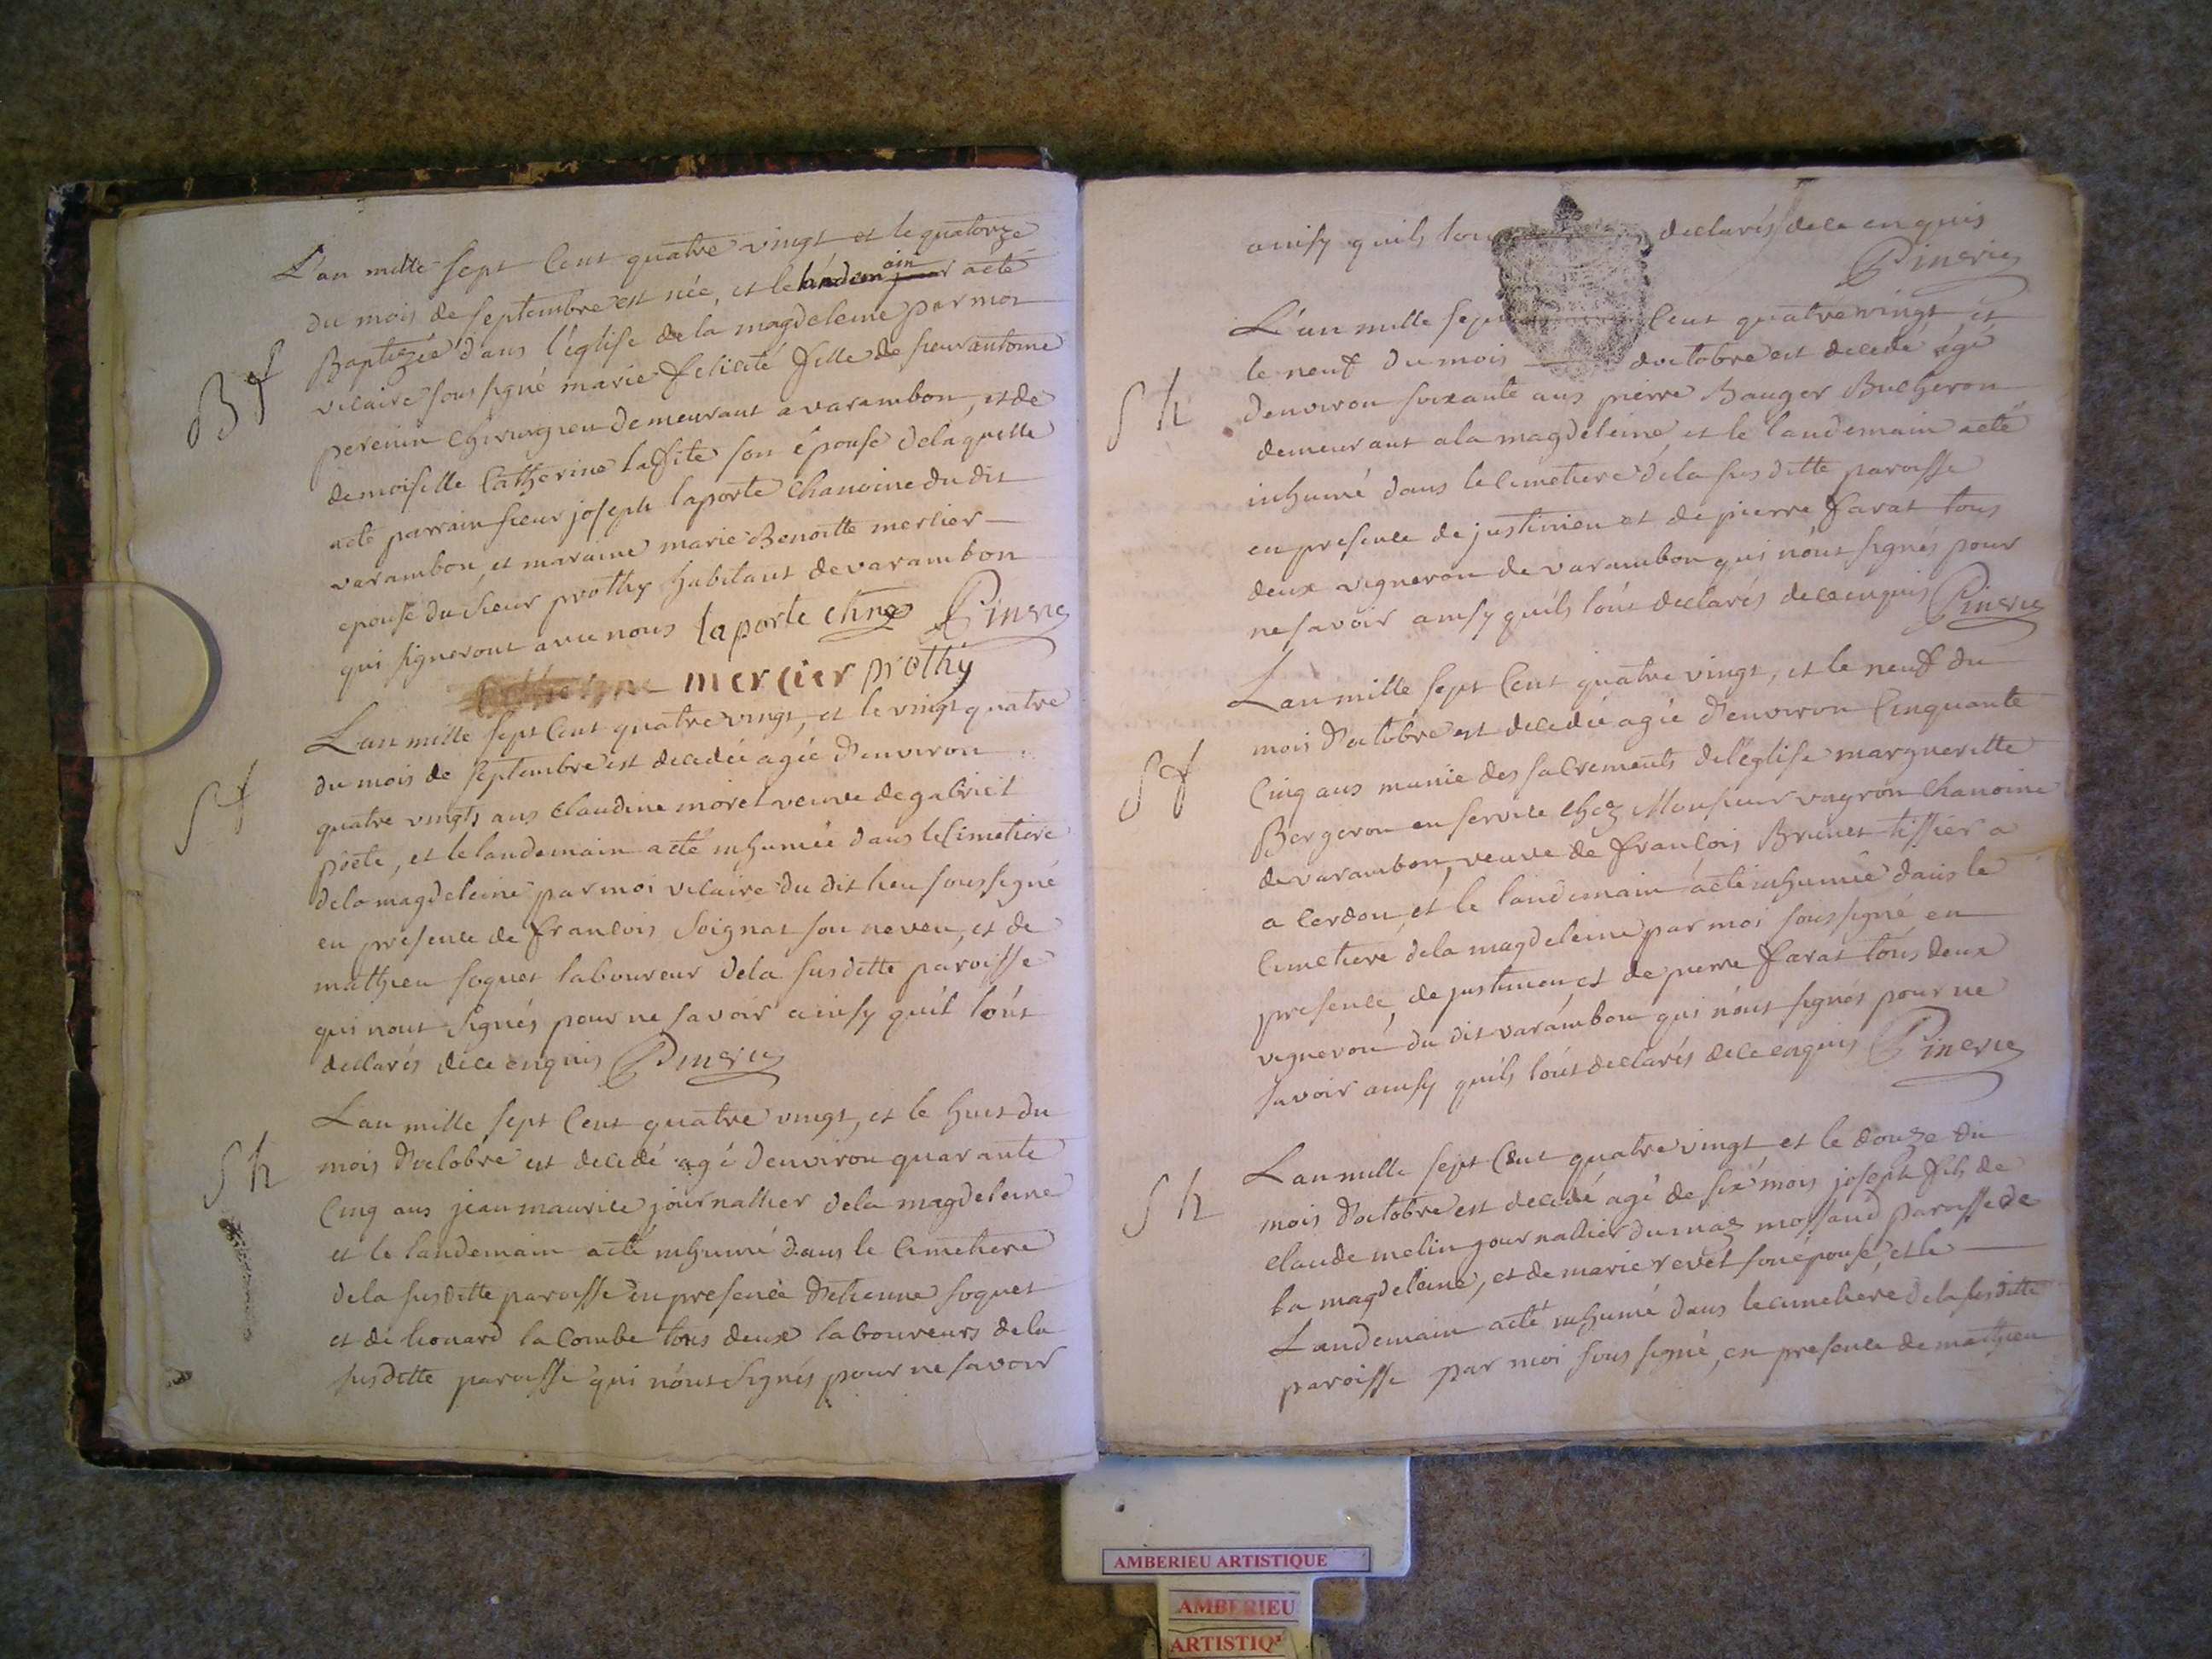 L'an mille sept Cent quatre vingt et le quatorze
du mois de septembre est née, et le landemain acté
Bf
Baptizée dans l'église de la magdeleine par moi
vicaire sous signé marie felicité fille de sieur antoine
perenin chirurgien demeurant a varambon, et de
demoiselle Catherine lafite son épouse delaquelle
acté parrain sieur joseph laporte chanoine du dit
varambon, et maraine marie Benoitte mercier
epouse du sieur prothy habitant de varambon
qui signeront avec nous laporte chne Pinerie
mercier prothy
L'an mille sept Cent quatre vingt, et le vingt quatre
du mois de septembre est decedéé agée d'environ
Sf
quatre vingts ans claudine morel veuve de gabriel
poete, et le landemain acté inhumée dans le Cimetiere
dela magdeleine par moi vicaire du dit lieu soussigné
en presence de francois Soignat son neveu, et de
mathieu soquet laboureur dela susditte paroisse
qui nont signés pour ne savoir ainsy quil lont
declarés dece enquis Pinerie
L'an mille sept Cent quatre vingt, et le huit du
Sh
mois d'octobre est decedé agé d'environ quarante
Cinq ans jean maurice journallier dela magdeleine
et le landemain acté inhumé dans le Cimetiere
dela susditte paroisse en presence d'etienne soquet
et de leonard la Combe tous deux laboureurs dela
susditte paroisse qui nont signés pour ne savoir
ainsy quils declarés dece enquis
Pinerie
L'an mille sept Cent quatre vingt et
le neuf du mois doctobre est decedé agé
Sh
d'environ soixante ans pierre Bauger Bucheron
demeurant ala magdeleine et le landemain acté
inhumé dans le Cimetiere dela sus ditte paroisse
en presence de justinien et de pierre farat tous
deux vigneron de varambon qui nont signés pour
ne savoir ainsy quils lont declarés dece enquis Pinerie
L'an mille sept Cent quatre vingt, et le neuf du
mois d'octobre est decedée agée d'environ Cinquante
Sf
Cinq ans munie des sacrements del'église margueritte
Bergeron en service chez Monsieur vayron Chanoine
de varambon, veuve de francois Brunet tissier a
a Cerdon, et le landemain acté inhumée dans le
Cimetiere dela magdeleine par moi soussigné en
presence, de justinien, et de pierre farat tous deux
vigneron du dit varambon qui n'ont signés pour ne
savoir ainsy quils lont declarés dece enquis Pinerie
L'an mille sept Cent quatre vingt et le douze du
Sh
mois d'octobre est decedé agé de six mois joseph fils de
claude melin journallier du maz mossaud paroisse de
la magdeleine, et de marie revet son épouse, et le
Landemain acté inhumé dans le cimetiere dela susditte
paroisse par moi sous signé, en presence de mathieu
AMBERIEU ARTISTIQUE
AMBERIEU
ARTISTIQ